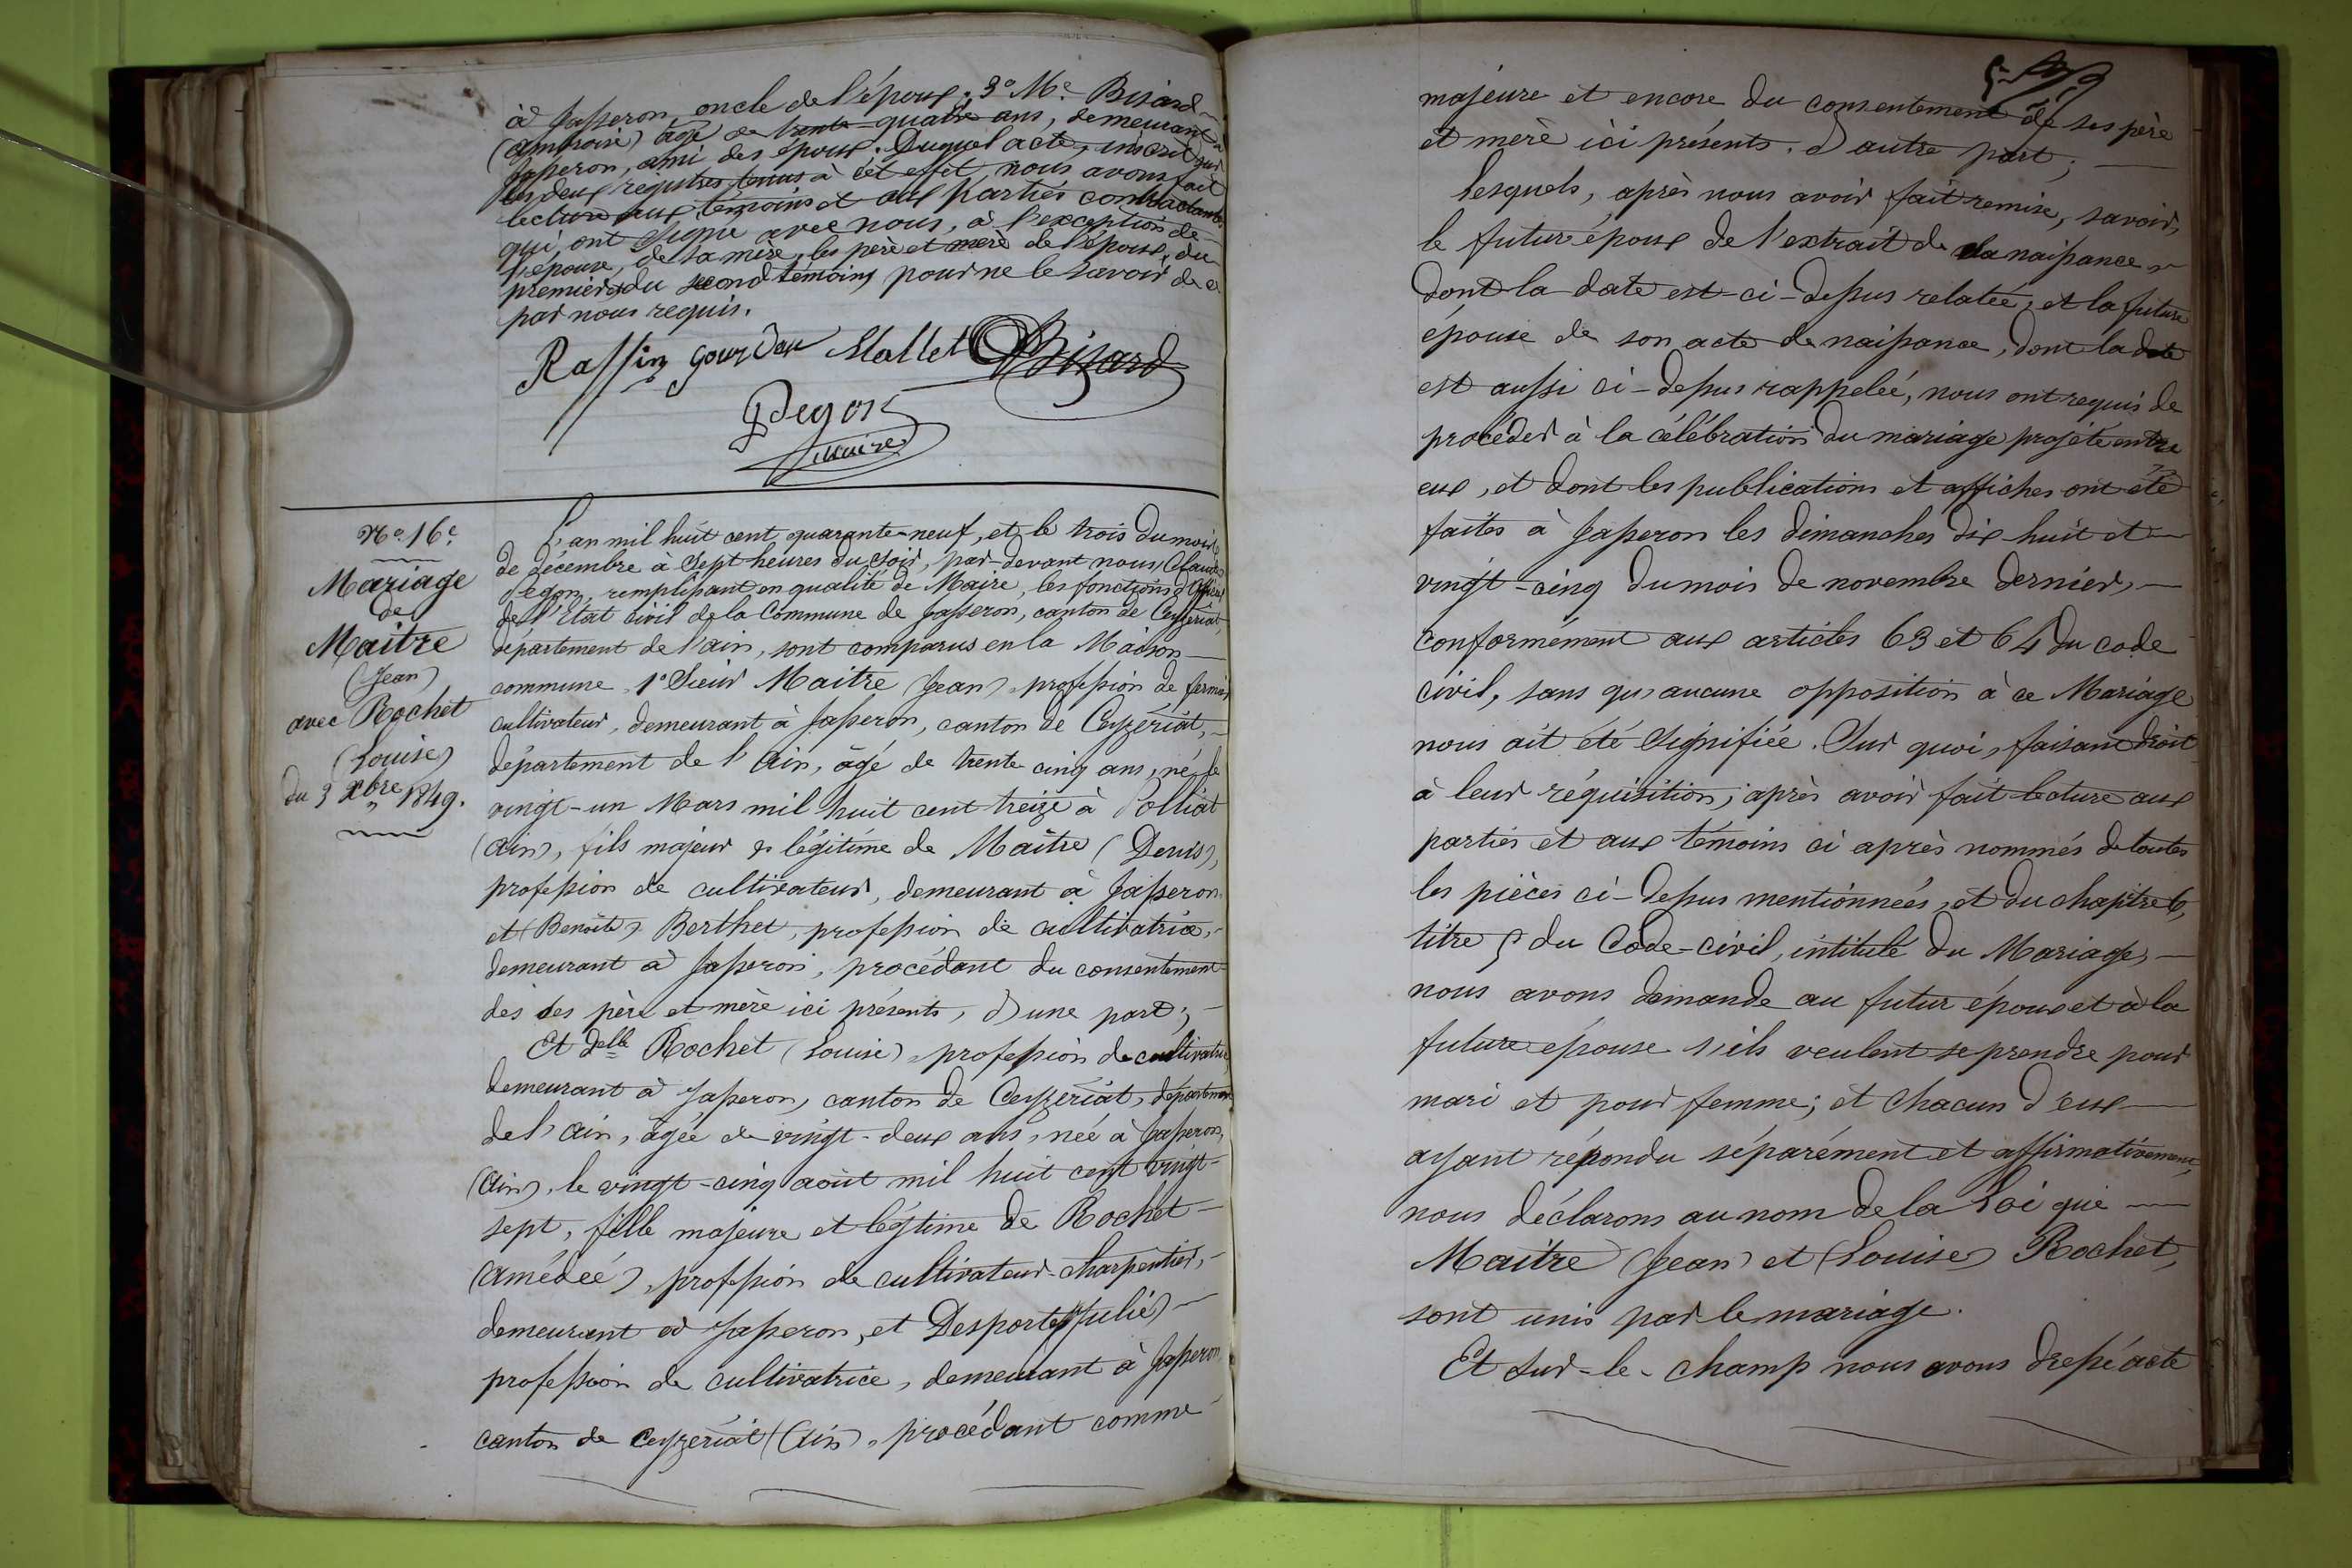 à Jasseron, oncle de l'époux; 3° Mr. Bizard
(Ambroise) âgé de trente-quatre ans, demeurant à
Jasseron, ami des époux. Duquel acte, inscrit sur
les deux registres tenus à cet effet, nous avons fait
lecture aux témoins et aux parties contractantes
qui ont signé avec nous, à l'exception de
l'épouse, de sa mère, les père et mère de l'époux, du
premier & du second témoins pour ne le savoir de ce
par nous requis.
Raffin Gourdan Mallet Bizard
Degon
maire
No. 16e.
Mariage
de
Maitre
(Jean)
avec Rochet
(Louise)
du 3 Xbre 1849.
L'an mil huit cent quarante-neuf, et le trois du mois
de décembre à sept heures du soir, par-devant nous Claude
Degon, remplissant en qualité de Maire, les fonctions d'officier
de l'Etat civil de la Commune de Jasseron, canton de Ceyzériat,
département de l'ain, sont comparus en la Maison
commune 1° Sieur Maitre (Jean), profession de fermier
cultivateur, demeurant à Jasseron, canton de Ceyzériat,
département de l'Ain, âgé de trente cinq ans, né le
vingt-un Mars mil huit cent treize à Polliat
(Ain), fils majeur & légitime de Maitre (Denis),
profession de cultivateur, demeurant à Jasseron
et (Benoite) Berthet, profession de cultivatrice,
demeurant à Jasseron, procédant du consentement
des ses père et mère ici présents, d'une part;
Et delle Rochet (Louise), profession de cultivatrice
demeurant à Jasseron, canton de Ceyzériat, département
de l'ain, âgée de vingt-deux ans, née à Jasseron,
(Ain), le vingt-cinq août mil huit cent vingt-
sept, fille majeure et légitime de Rochet
(Amédée), profession de cultivateur-charpentier,
demeurant à Jasseron, et Desportes (Julie)
profession de cultivatrice, demeurant à Jasseron
canton de Ceyzériat (Ain), procédant comme
majeure et encore du consentement de ses père
et mère ici présents. D'autre part;
Lesquels, après nous avoir fait remise, savoir,
le futur époux de l'extrait de sa naissance
dont la date est-ci-dessus relatée, et la future
épouse de son acte de naissance, dont la date
est aussi ci-dessus rappelée, nous ont requis de
procéder à la célébration du mariage projeté entre
eux, et dont les publications et affiches ont été
faites à Jasseron les dimanches dix huit et
vingt-cinq du mois de novembre dernier,
conformément aux articles 63 et 64 du code
civil, sans qu'aucune opposition à ce Mariage
nous ait été signifiée. Sur quoi, faisant droit
à leur réquisition; après avoir fait lecture aux
parties et aux témoins ci après nommés de toutes
les pièces ci-dessus mentionnées, et du chapitre 6,
titre 5 du Code-civil, intitulé du Mariage,
nous avons demandé au futur époux et à la
future épouse s'ils veulent se prendre pour
mari et pour femme; et chacun d'eux
ayant répondu séparément et affirmativement,
nous déclarons au nom de la Loi que
Maitre (Jean) et (Louise) Rochet,
sont unis par le mariage.
Et sur-le-champ nous avons dressé acte